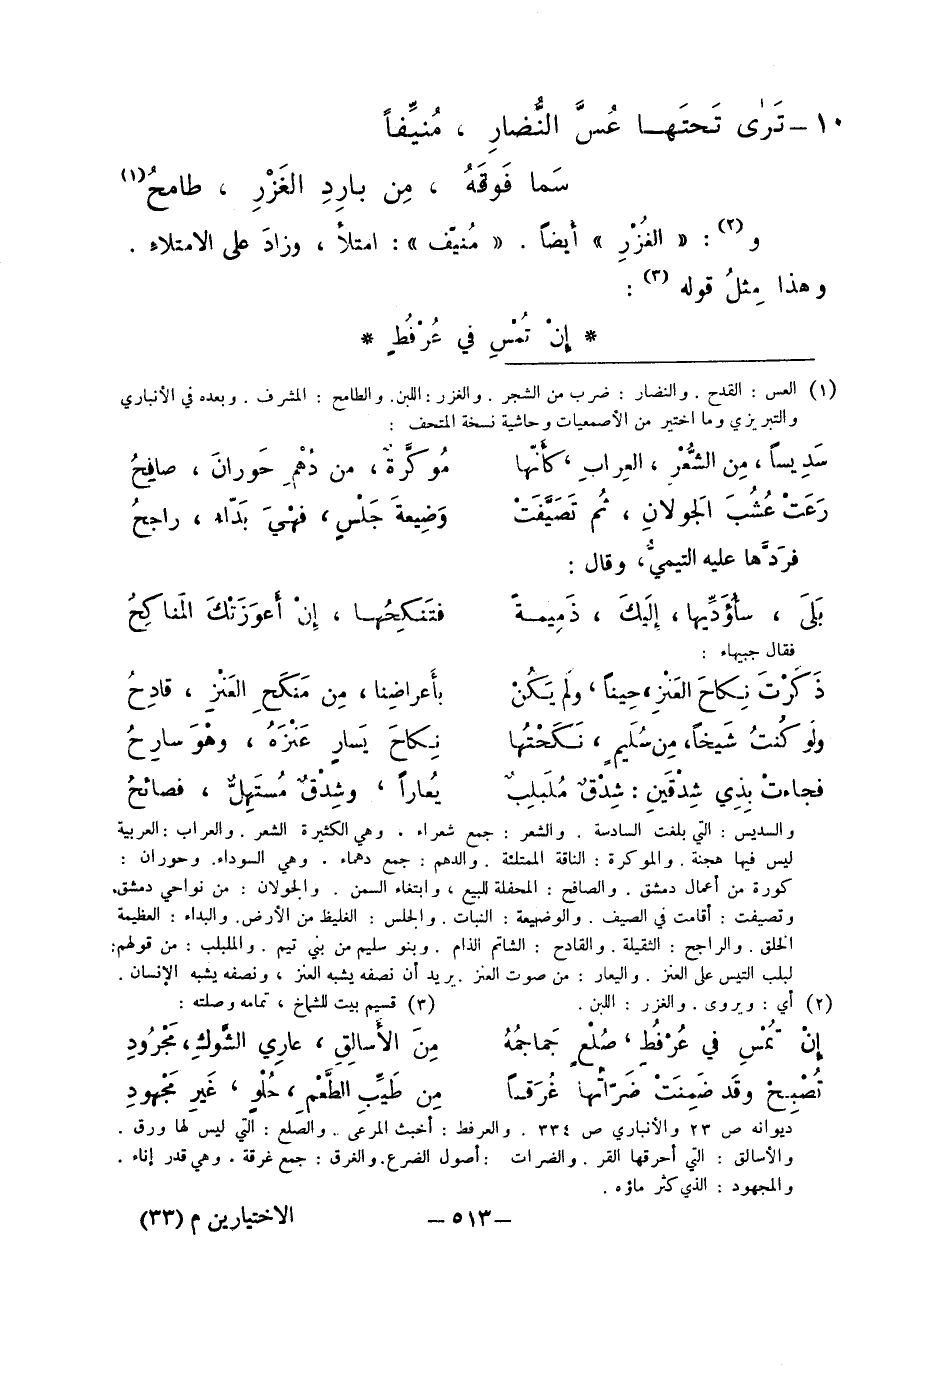 ١٠ – تَرٰى تَحتَهـا عُسَّ النُّضارِ ، مُنيِّفاً
سَما فَوقَهُ ، مِن بارِدِ الغَزْرِ ، طامحُ(١)
و(٢) : « الغُزْرِ » أيضاً . « مُنيّف » : امتلأ ، وزادَ على الامتلاء .
وهذا مِثلُ قوله (٣) :
* إنْ تُمْسِ في عُرْفُطٍ *
(١) العس : القدح . والنضار : ضرب من الشجر . والغزر : اللبن . والطامح : المشرف . وبعده في الأنباري
والتبريزي وما اختير من الأصمعيات وحاشية نسخة المتحف :
سَدِيساً ، مِن الشُّعْرِ ، العِرابِ ، كأنّها مُوكَّرةٌ ، من دُهْمِ حَورانَ ، صافِحُ
رَعَتْ عُشُبَ الجَولانِ ، ثُم تَصَيَّفَتْ وَضِيعةَ جَلْسٍ ، فهْيَ بَدّاء ، راجحُ
فرَدَّها عليه التيميُّ ، وقال :
بَلَى ، سأُؤَدِّيها ، إلَيكَ ، ذَمِيمـةً فتَنكِحُهـا ، إنْ أعوَزَتْكَ المَناكِحُ
فقال جبيهاء :
ذَكَرْتَ نِكاحَ العَنْزِ ، حِيناً ، ولَم يَكُنْ بأعراضِنا ، مِن مَنكَحِ العَنْزِ ، قادِحُ
ولَو كُنتُ شَيخاً ، مِن سُلَيمٍ ، نَـكَحْتُها نِـكاحَ يَسارٍ عَنْزَهُ ، وهْوَ سارِحُ
فجاءتْ بِذِي شِدْقَينِ : شِدْقٌ مُلَبلِبٌ يُعاراً ، وشِدْقٌ مُستَهِلٌّ ، فصائحُ
والسديس : التي بلغت السادسة . والشعر : جمع شعراء . وهي الكثيرة الشعر . والعراب : العربية
ليس فيها هجنة . والموكرة : الناقة الممتلئة . والدهم : جمع دهماء . وهي السوداء . وحوران :
كورة من أعمال دمشق . والصافح : المحفلة للبيع ، وابتغاء السمن . والجولان : من نواحي دمشق .
وتصيفت : أقامت في الصيف . والوضيعة : النبات . والجلس : الغليظ من الأرض . والبداء : العظيمة
الخلق . والراجح : الثقيلة . والقادح : الشاتم الذام . وبنو سليم من بني تيم . والملبلب : من قولهم :
لبلب التيس على العنز . واليعار : من صوت العنز . يريد أن نصفه يشبه العنز ، ونصفه يشبه الإنسان .
(٢) أي : ويروى . والغزر : اللبن . (٣) قسيم بيت للشماخ ، تمامه وصلته :
إنْ تُمْسِ في عُرْفُطٍ ، صُلْعٍ جَماجِمُهُ مِنَ الأَسالِقِ ، عارِي الشَّوكِ ، مَجْرُودِ
تُصْبِحْ وقَد ضَمِنَتْ ضَرّاتُها غُرَقـاً مِن طَيِّبِ الطَّعْمِ ، حُلْوٍ ، غَيرِ مَجْهودِ
ديوانه ص ٢٣ والأنباري ص ٣٣٤ . والعرفط : أخبث المرعى .. والصلع : التي ليس لها ورق .
والأسالق : التي أحرقها القر . والضرات : أصول الضرع . والغرق : جمع غرقة . وهي قدر إناء .
والمجهود : الذي كثر ماؤه .
– ٥١٣ – الاختيارين م (٣٣)